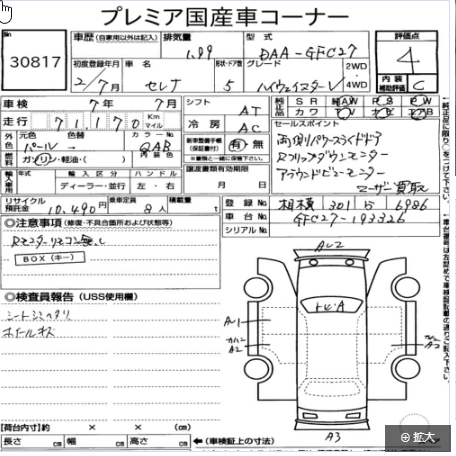 プレミア国産車コーナー
No 30817
車歴 (自家用以外は記入) 排気量 1.99 型式 DAA-GFC27 評価点 4
初度登録年月 2/7月 車名 セレナ ドア数 5 グレード ハイウェイスターV 2WD 4WD
内装 補助評価 C
車検 7年 7月 シフト AT
純正品 SR 純AW PS PW
走行 71,170 Km マイル 冷房 AC
カワ TV ナビ エアB
外色 元色 色替 カラーNo QAB
パール 内装色
燃料 ガソリン・軽油・( )
新車整備手帳(保証書付) 有・無
※書類と一緒に保管。
セールスポイント
両側パワースライドドア
Rフリップダウンモニター
アラウンドビューモニター
ユーザー買取
輸入車用 年式 輸入区分 ハンドル
ディーラー・並行 左・右
譲渡書類有効期限
月 日
リサイクル預託金 10,490円 乗車定員 8人 積載量 t
登録No 相模 301 6986
車台No GFC27-193326
シリアルNo
◎注意事項 (修復・不具合箇所および状態等)
Rモニターリモコン無し
BOX (キー)
◎検査員報告 (USS使用欄)
シートシミ
ホイールキズ
AU2
トビA
AU1
A2
A3
【荷台内寸】約 × ×
長さ cm 幅 cm 高さ cm ←(車検証上の寸法)
拡大